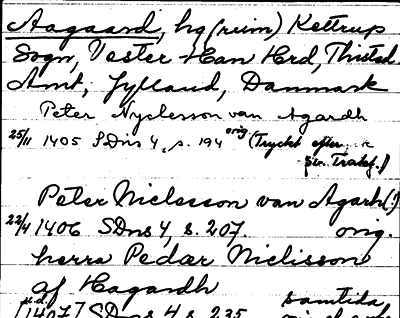 Aagaard, hg (ruin) Kettrup
Sogn, Vester Han Hrd, Thisted
Amt, Jylland, Danmark
Peter Nyclesson van Agardh
25/11 1405 SDns 4, s. 194 orig (Tryckt efter
sv. Traktf.)
Peter Niclesson van Agarh(!)
22/4 1406 SDns 4, s. 207. orig.
herra Pedar Niclisson
af Hagardh
u.d. samtida
[1407] SDns 4 s 235